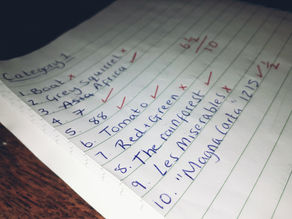 6½/10
Category 1
1. Boat x
2. Grey Squirrel x
3. Asia Africa ✓
4. 7 ✓
5. 88 ✓
6. Tomato ✓
7. Red & Green x
8. The rainforest ✓
9. Les Miserables x
10. "Magna Carta" 1215 ✓ ½